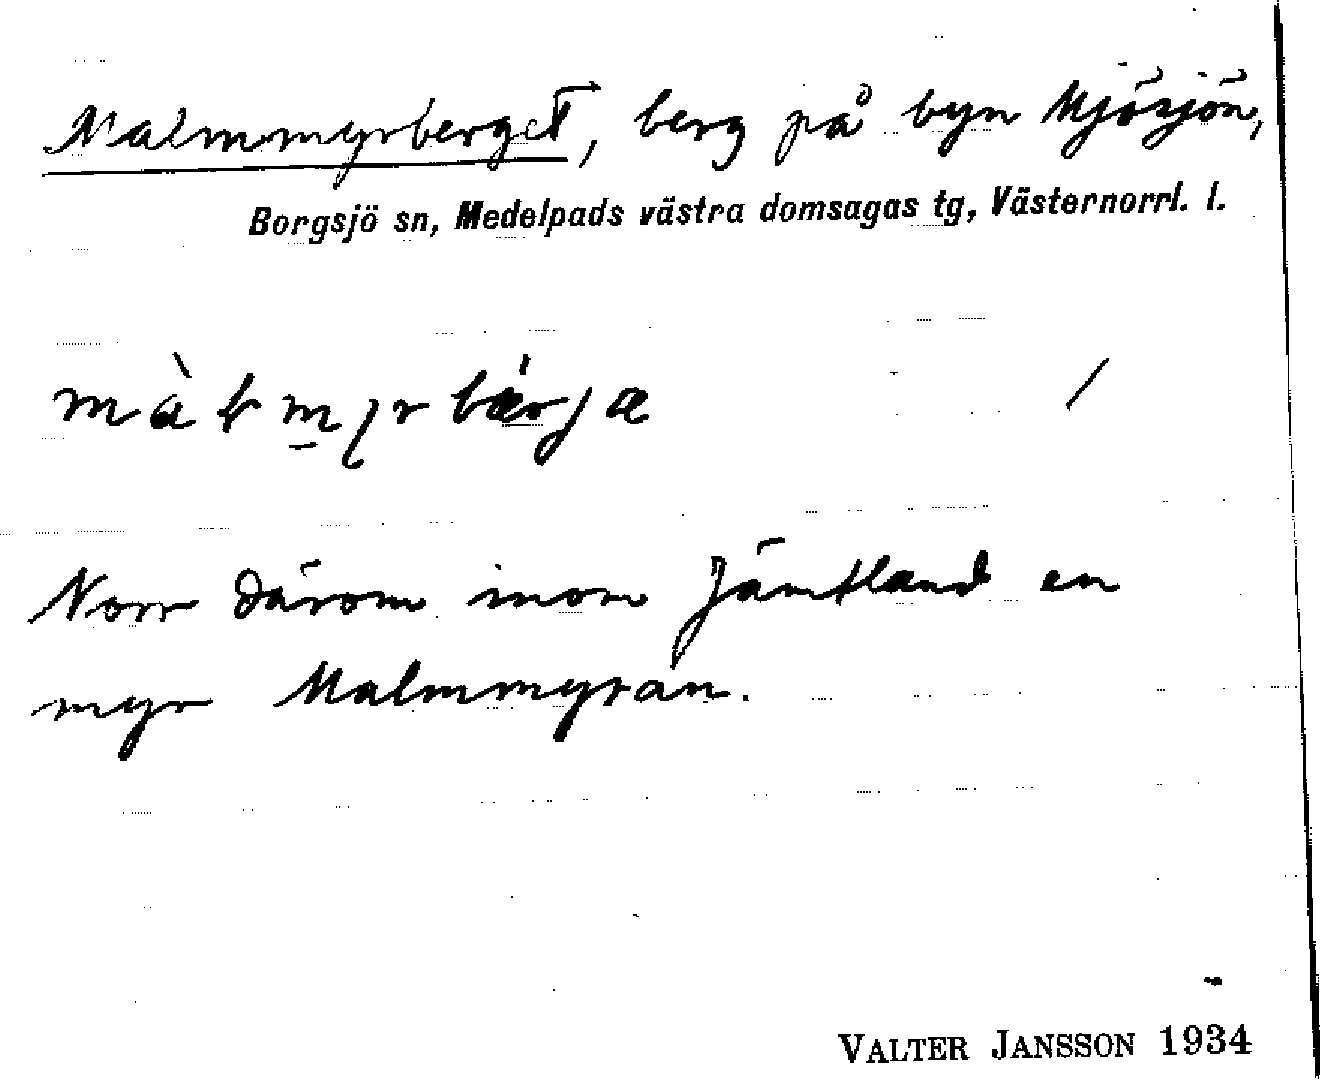 Malmmyrberget, berg på byn Mjösjön,
Borgsjö sn, Medelpads västra domsagas tg, Västernorrl. l.
Norr därom inom Jämtland en
myr Malmmyran.
VALTER JANSSON 1934